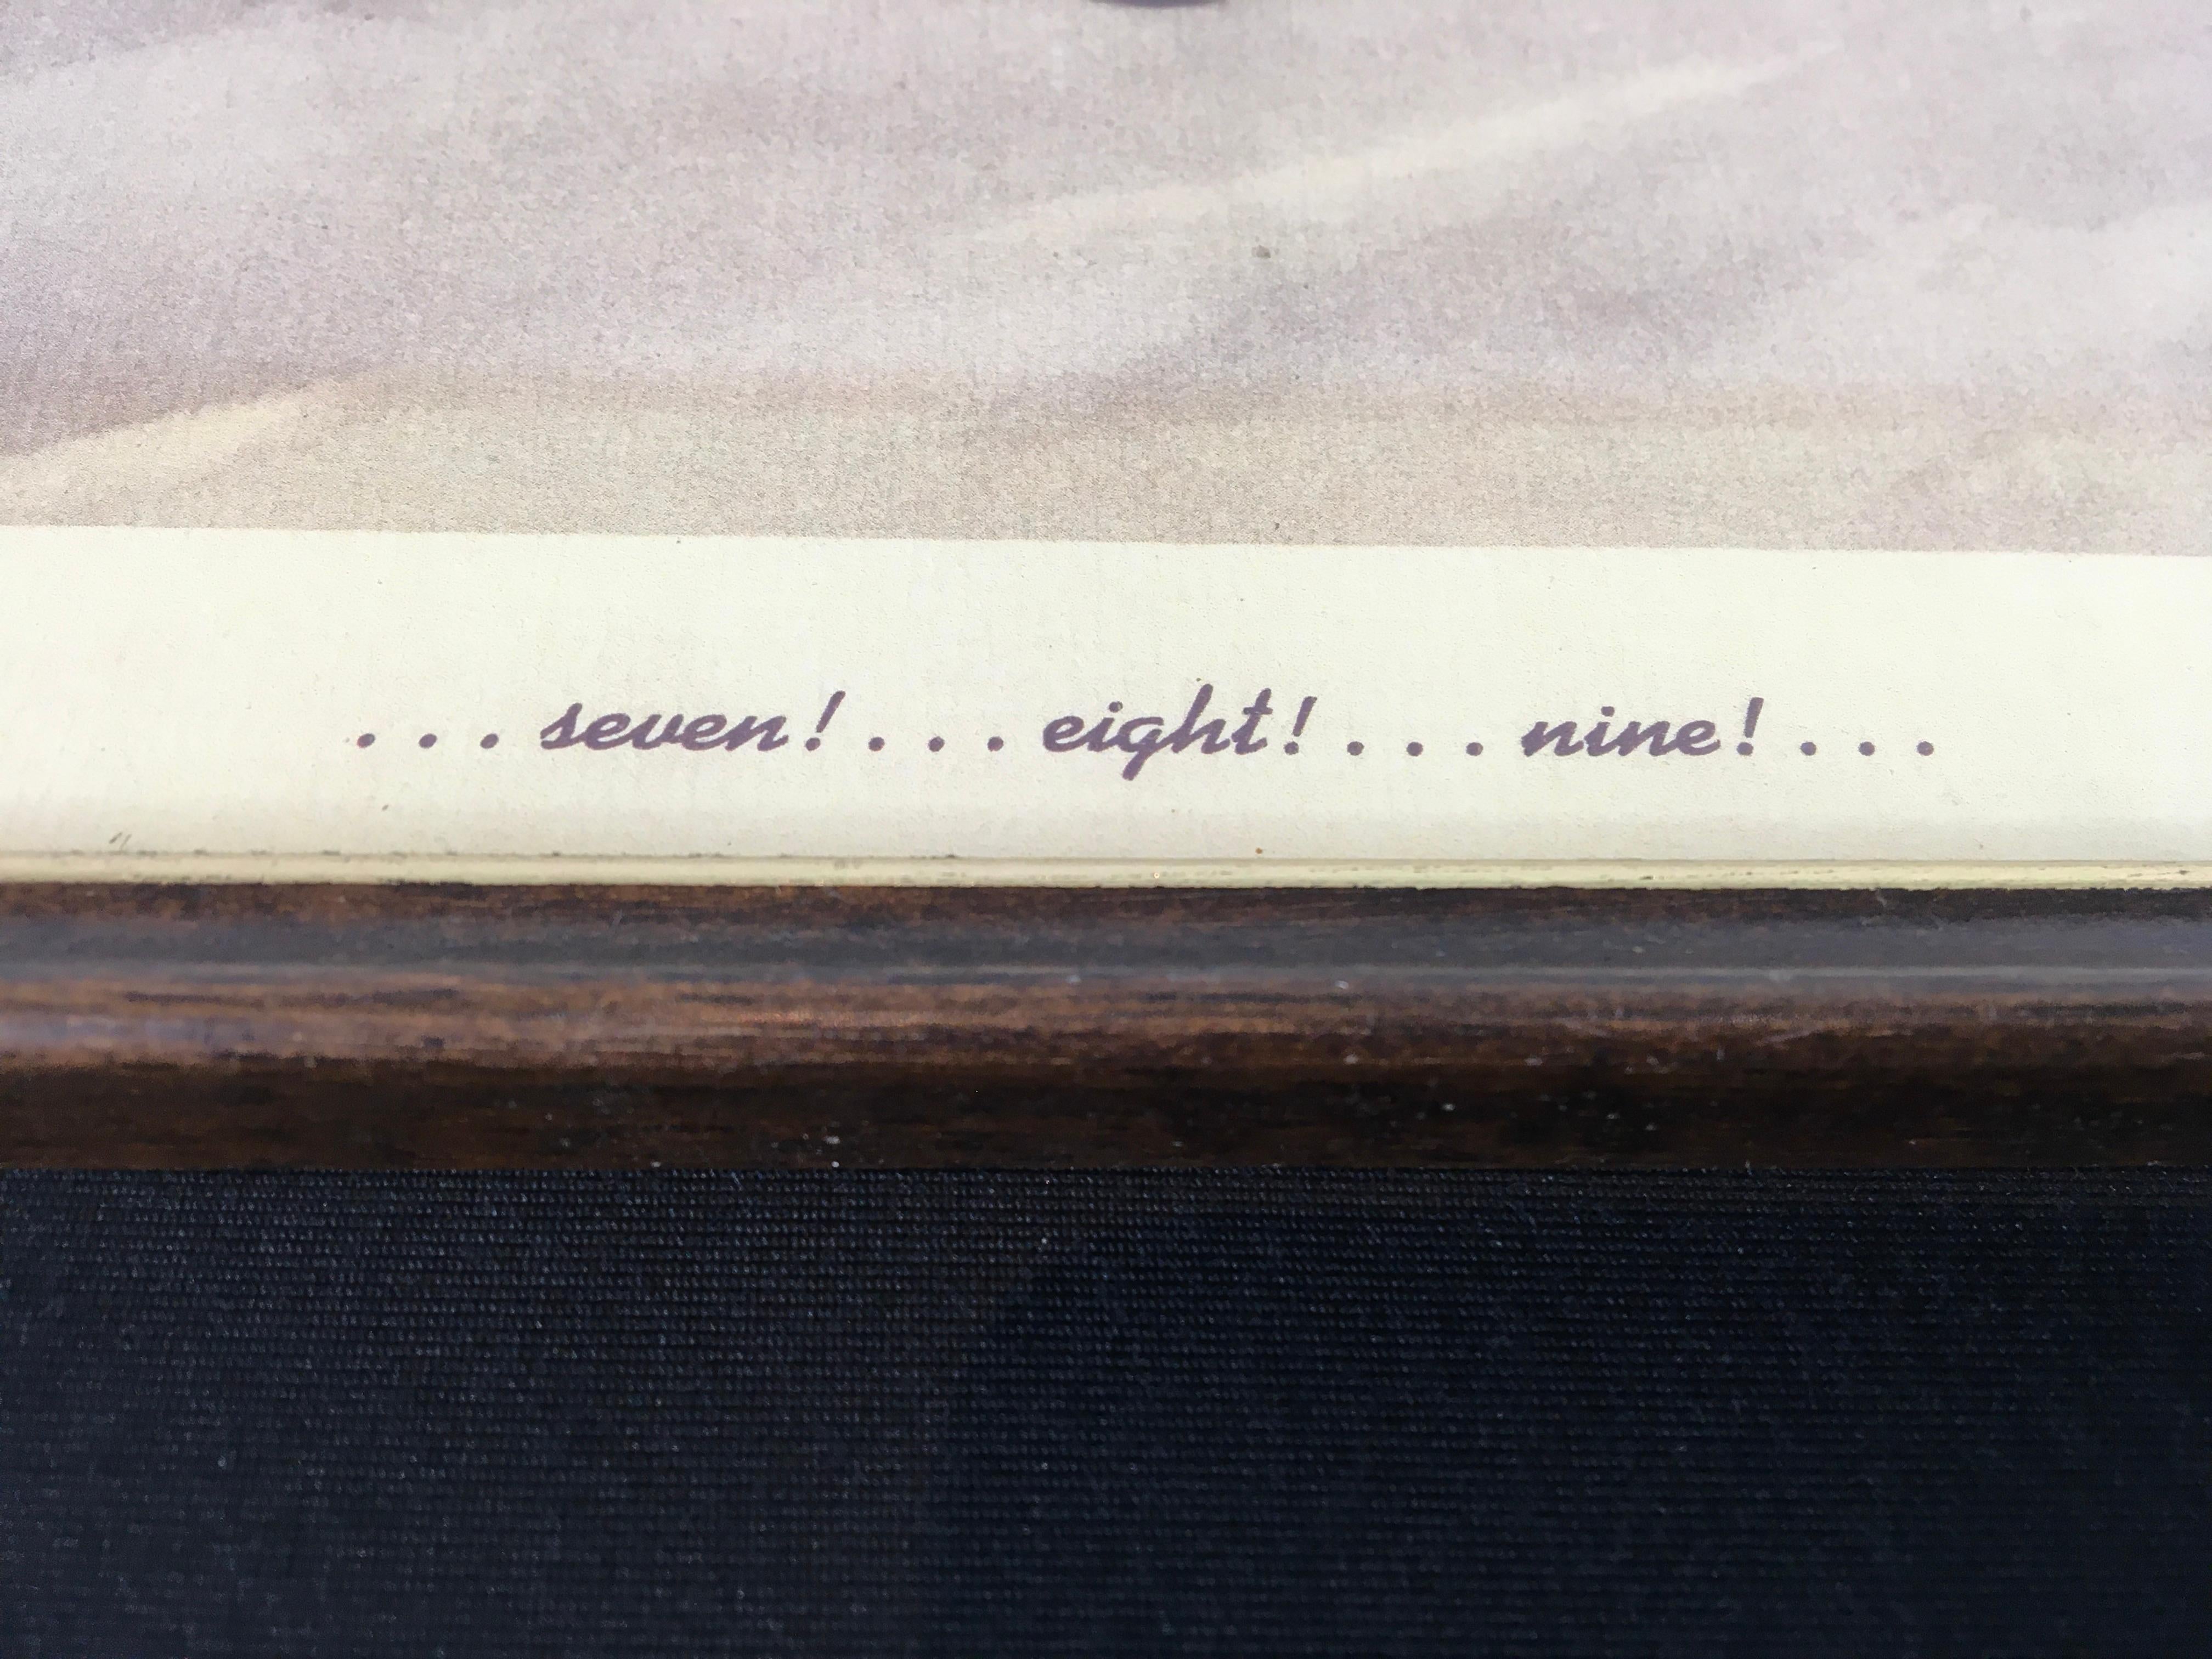 . . . seven! . . . eight! . . . nine! . . .